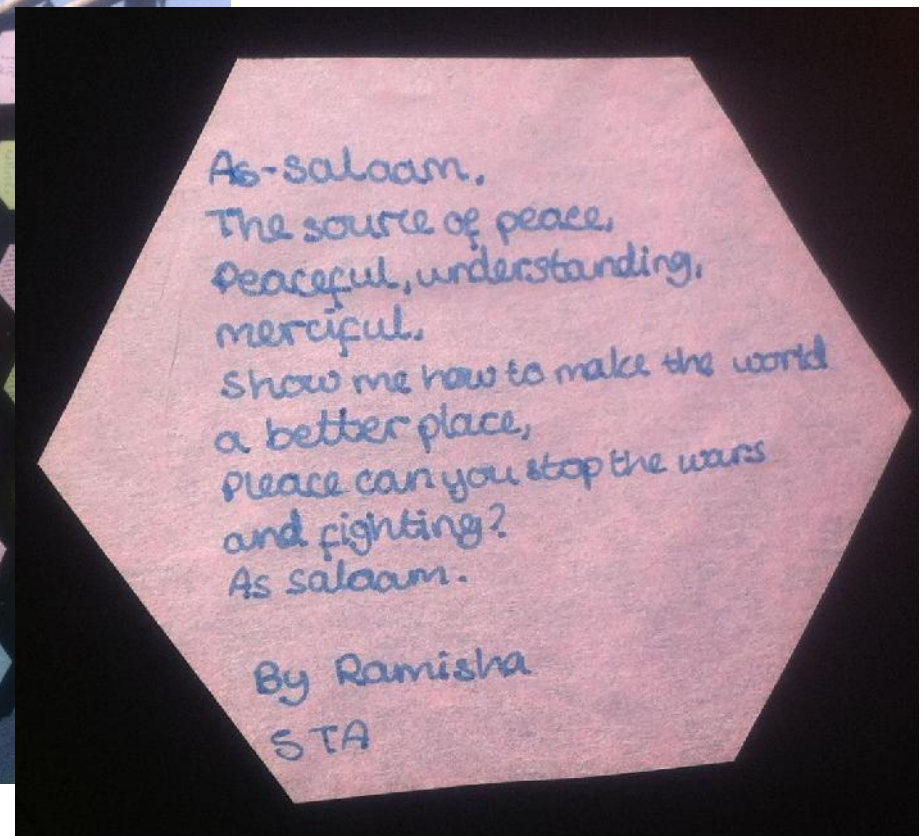 As-salaam.
The source of peace,
Peaceful, understanding,
merciful.
Show me how to make the world
a better place,
pleace can you stop the wars
and fighting?
As salaam.
By Ramisha
STA